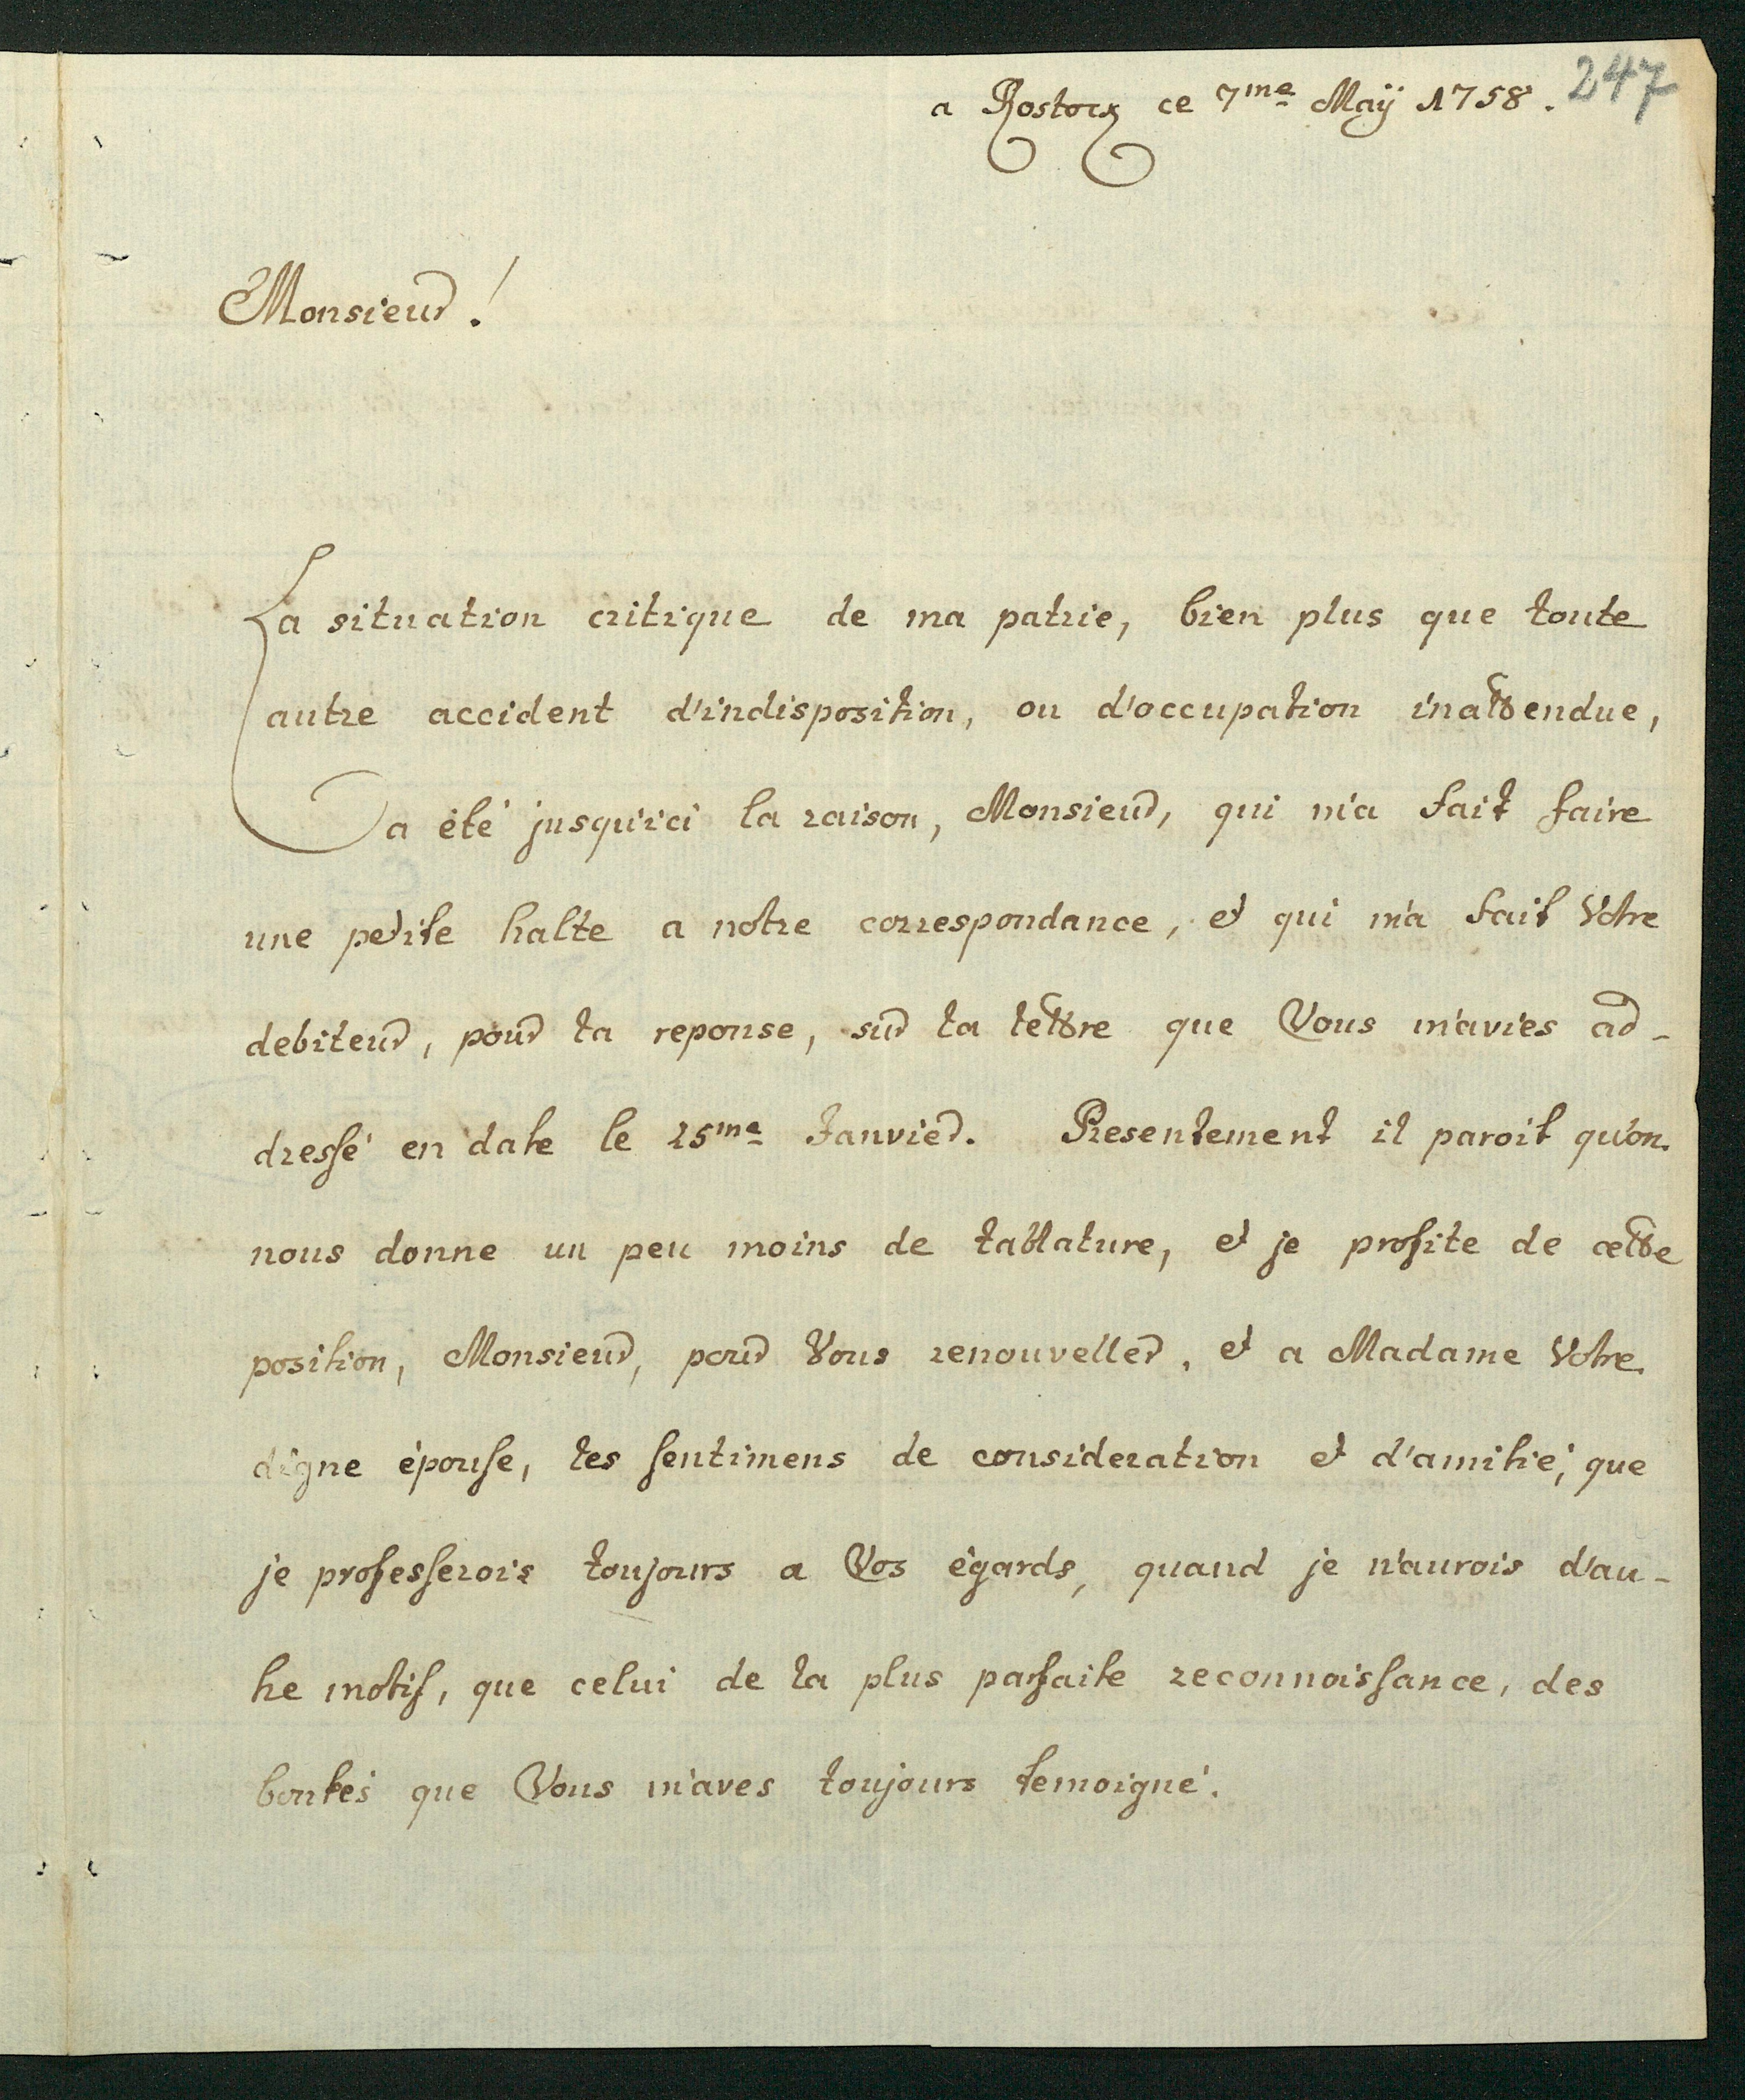 247
a Rostock ce 7me Maÿ 1758.
Monsieur!
La situation critique de ma patrie, bien plus que toute
autre accident d'indisposition, ou d'occupation inattendue,
a été jusqu'ici la raison, Monsieur, qui m'a fait faire
une petite halte a notre correspondance, et qui m'a fait Votre
debiteur, pour la reponse, sur la lettre que Vous m'aviés ad-
dressé en date le 25me Janvier. Presentement il paroit qu'on
nous donne un peu moins de tablature, et je profite de cette
position, Monsieur, pour Vous renouveller, et a Madame Votre
digne épouse, les sentimens de consideration et d'amitié, que
je professerois toujours a Vos égards, quand je n'aurois d'au-
tre motif, que celui de la plus parfaite reconnoissance, des
bontés que Vous m'aves toujours temoigné.